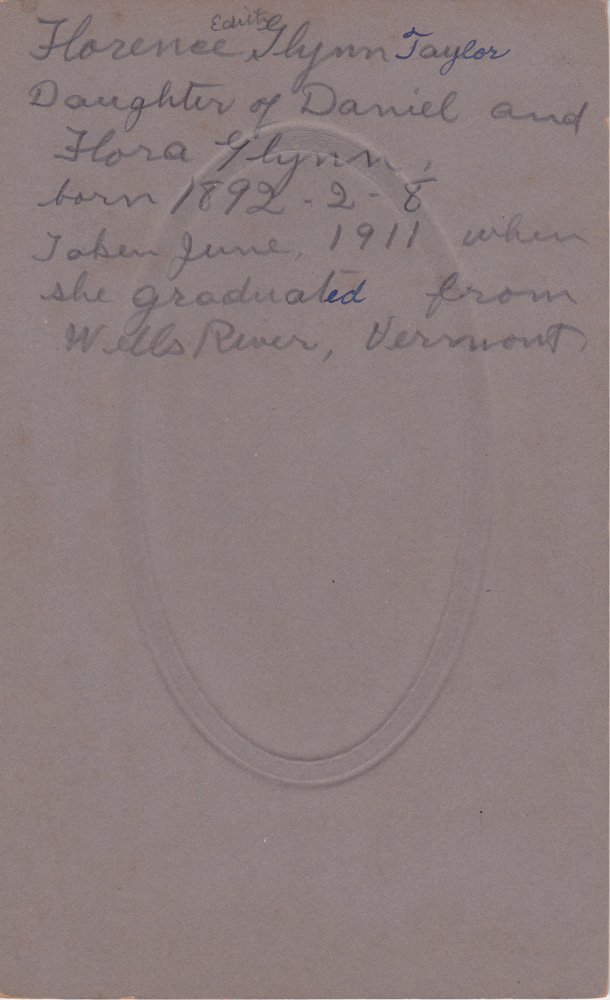 Edith
Florence Glynn Taylor
Daughter of Daniel and
Flora Glynn,
born 1892-2-8
Taken June, 1911 when
she graduated from
Wells River, Vermont